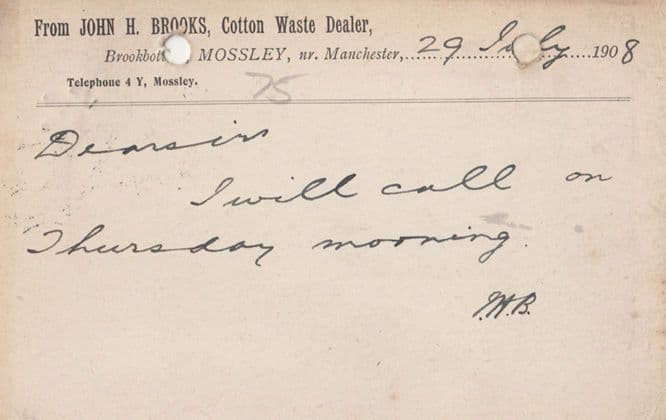 From JOHN H. BROOKS, Cotton Waste Dealer,
Brookbott MOSSLEY, nr. Manchester, 29 July 1908
Telephone 4 Y, Mossley.
75
Dear sir
I will call on
Thursday morning.
J.H.B.